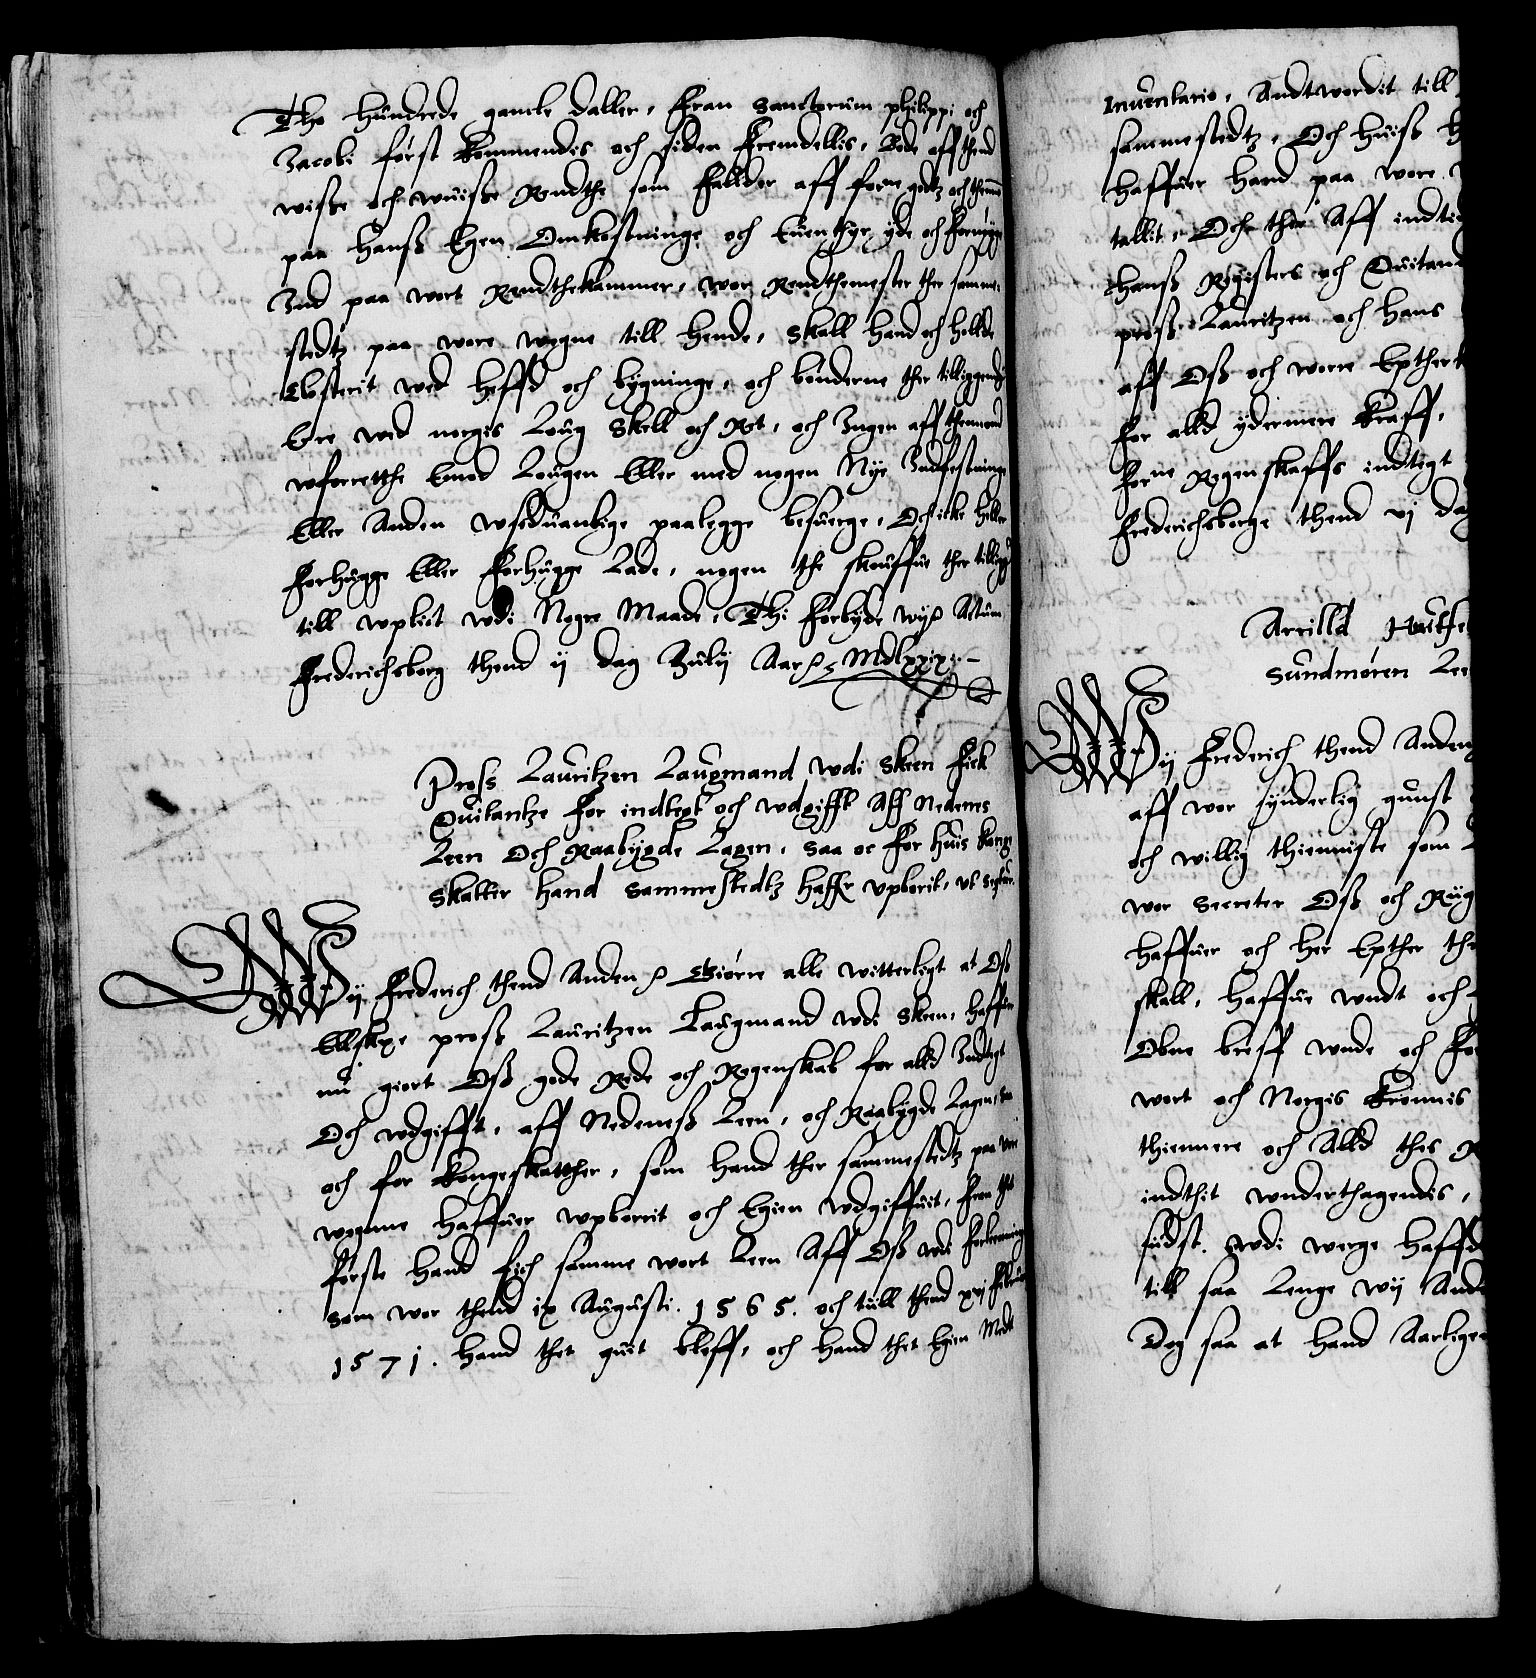 Tho hundrede gamle daller, Fran sanctorum philippi och
Jacobi først kommendis och siden Fremdellis, Bode aff thend
wisse och wuisse Rendthe som Falder aff forne godtz och thennd
paa hanss Egen Omkostninge och Euenthyr, yde och Fornøye
Ind paa wort Rendthekammer, wor Rendthemester ther samme-
stedtz paa wore wegne till hende, skall hand och hollde
Closterit wed heffd och bygninge, och bønderne ther tilliggendis
Ere wed norgis Loug Skell och Ret, och Ingen aff thennom
wforretthe Emod Lougen Eller med nogen Nye Indfestninge
Eller Anden wseduanlige paalegge besuerge, Och icke heller
Forhugge Eller Forhugge Lade, nogen the skouffue ther tilligge
till wplict wdi Nogre Maade, Thi Forbyde wij Actum
Frederichsborg thend ij dag Julij Aar MDLXXIX
Pross Lauritzen Laugmand wdi Skeen Fick
Quitantze For indtegt och wdgifft Aff Nedenes
Leen Och Raabygde Lagen, saa oc For huis kong
skatter hand sammestedtz haffr upborit, ut
Wij Frederich thend Anden Giørre alle witterligt at Oss
Ellskge pross Lauritzen Laugmand wdi Skeen, haffuer
nu giort Oss gode Rede och Regenskab for alld Indtegt
Och wdgifft, aff Nedeness Leen, och Raabygde Lagen, saa
och for kongeskatther, som hand ther sammestedtz paa wore
wegnne haffuer wpborrit och Egien wdgiffuit, Fran thet
første hand fich samme wort Leen Aff Oss wdi Forlenning
som wor thend ix Augusti. 1565. och till thend xvj Februar
1571. hand thet quit bleff, och hand thet Egien Medt
Inuentario, Andtwordit till
sammestedtz, Och huiss h
haffuer hand paa wore
tallit, Och ther Aff indti
thanss Registers och Quitand
pross Lauritzen och hans
aff Oss och worre Epther
for alld ydermere kraff,
forne Regenskaffs indtegt
Frederichsborge thend vj dag
Arrilld
Sundmøren Lee
Wij Frederich thend Anden
aff wor synderlig gunst
och willig thienniste som
wor Secreter Oss och Rig
haffuer och her Epther the
skall, haffue wndt och
Obne breff wnde och For
wort och Norgis Kronnis
thiennere och Alld thes R
indthit wnderthagendis,
sidst wdi werge haffd
till saa Lenge wij And
Dog saa at hand Aarligen